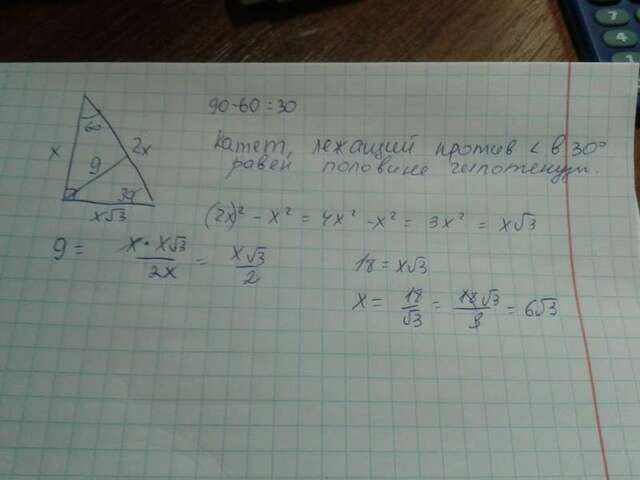 90-60=30
60
x
9
2x
30
x√3
Катет, лежащий против < в 30°
равен половине гипотенузы.
(2x)² - x² = 4x² - x² = 3x² = x√3
9 = x · x√3 / 2x = x√3 / 2
18 = x√3
x = 18 / √3 = 18√3 / 3 = 6√3
7